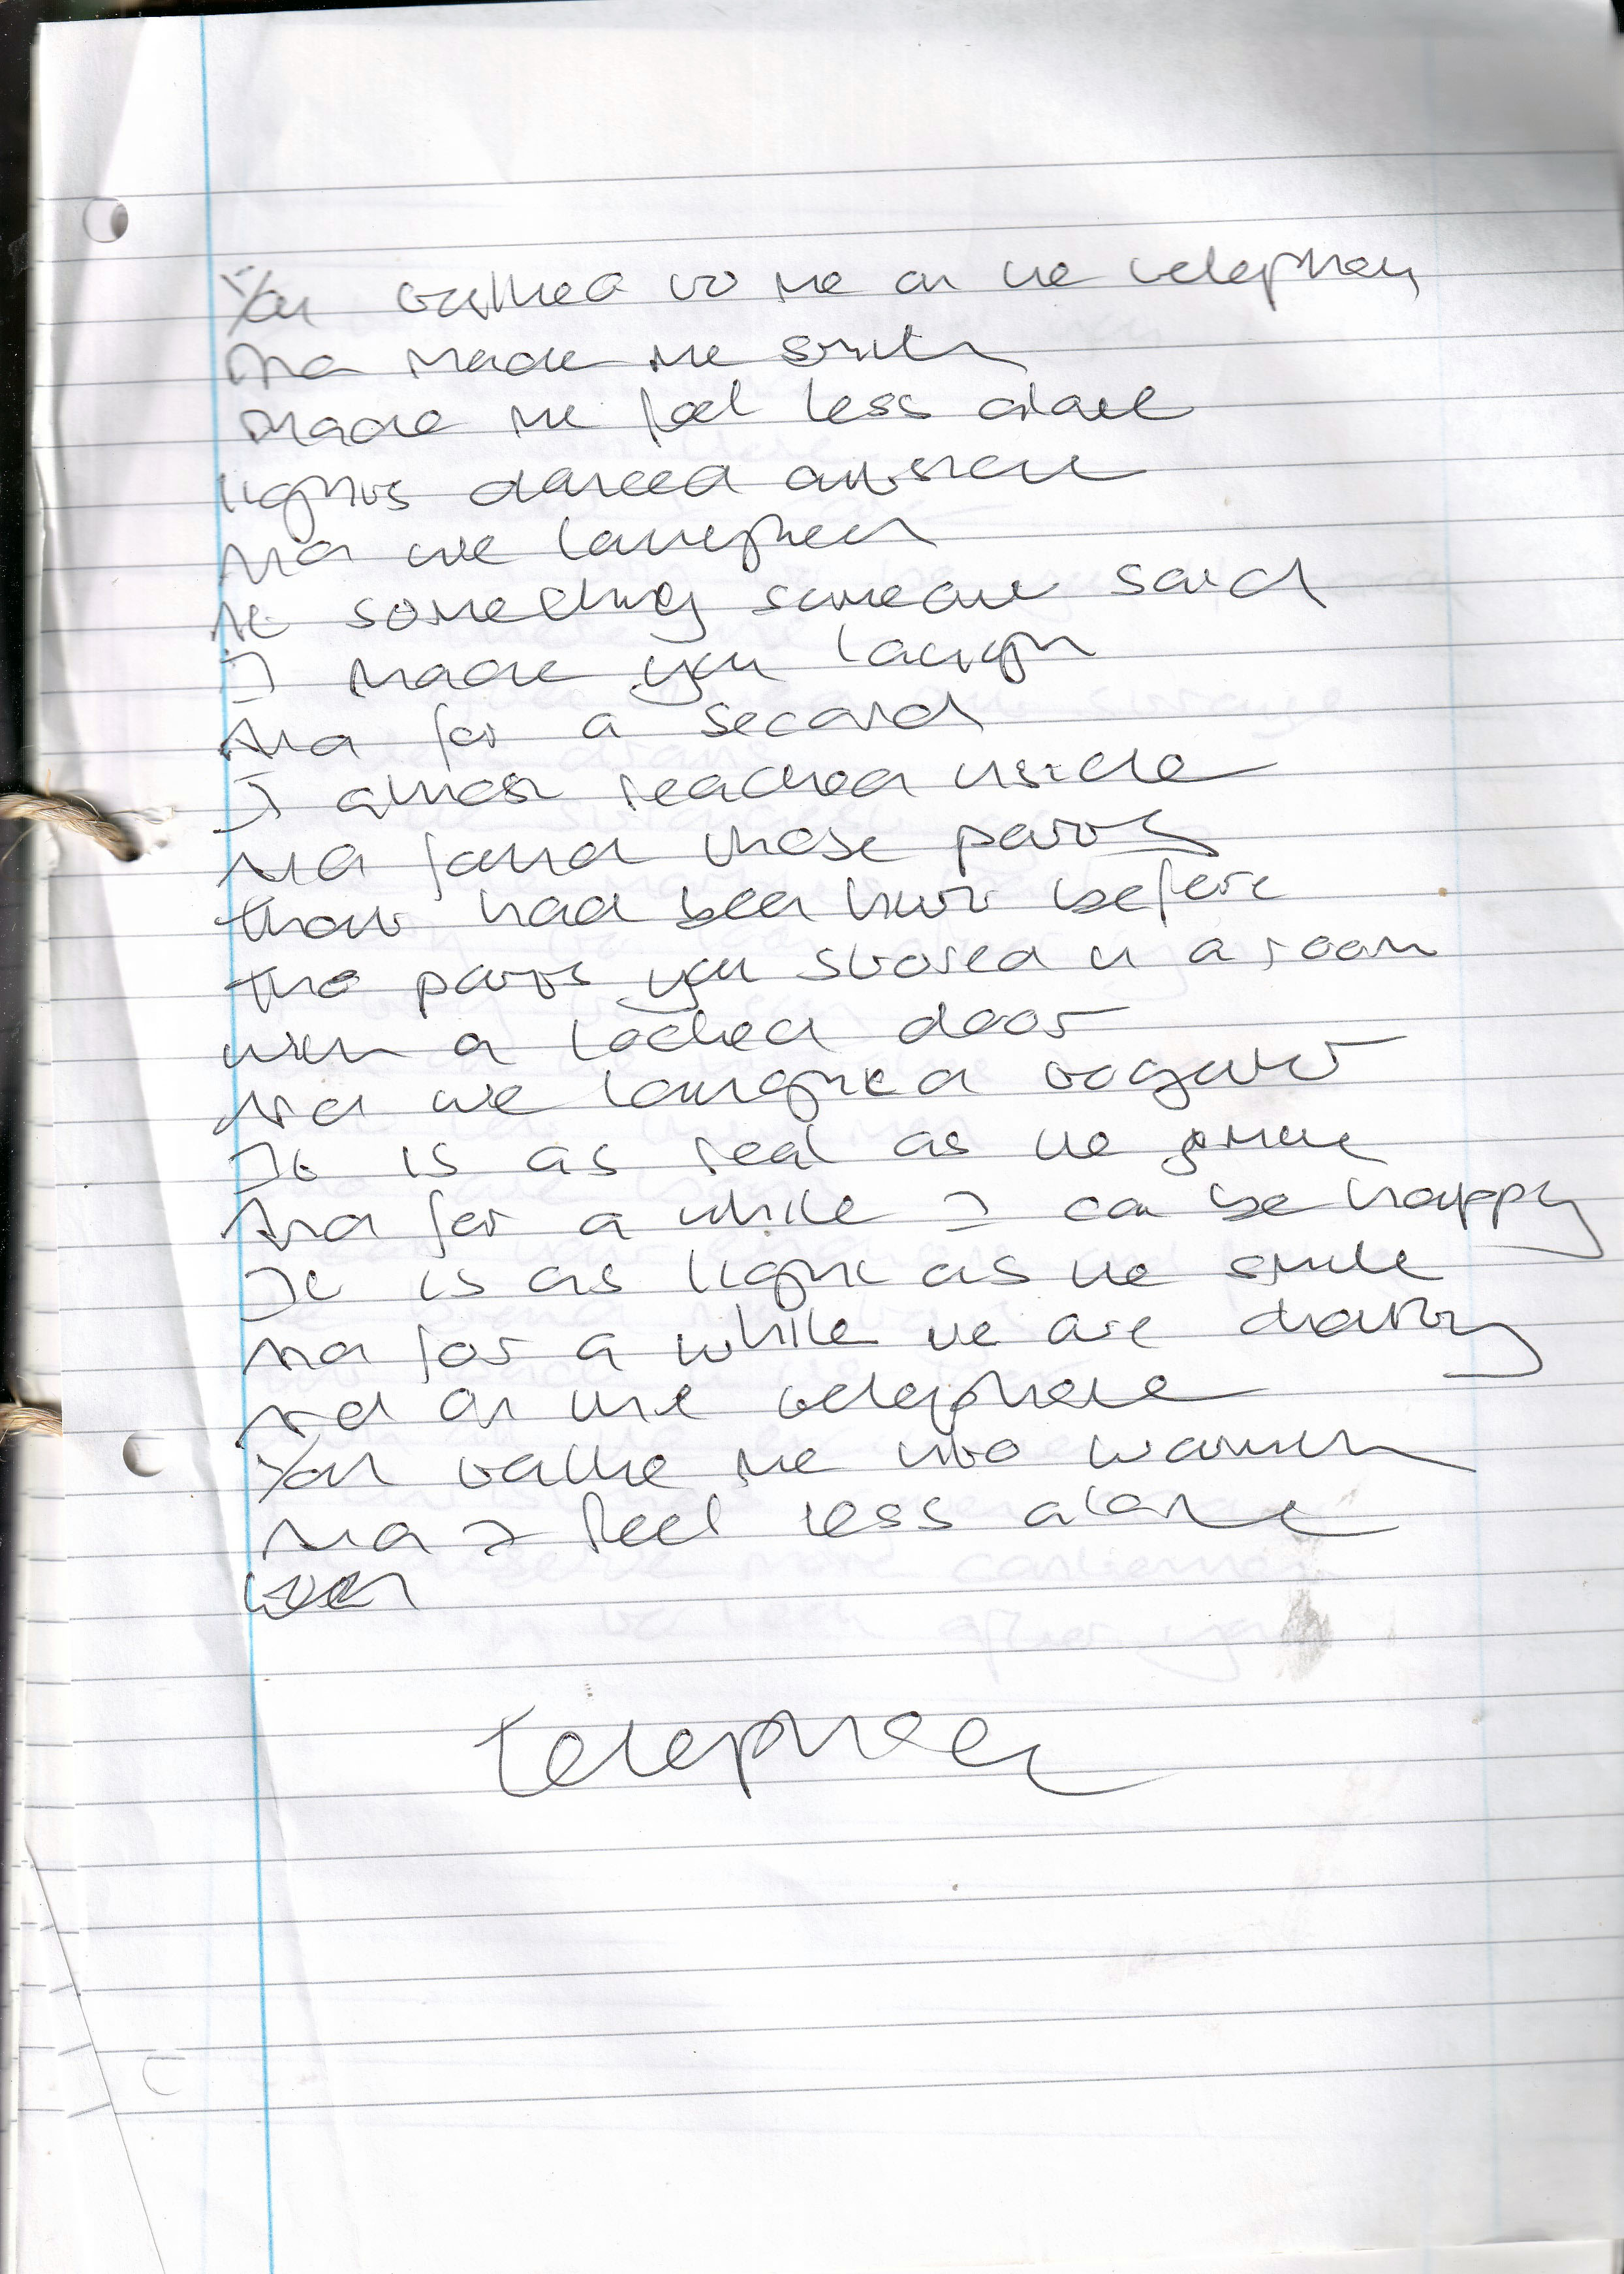 You talked to me on the telephone
And made me smile
Made me feel less alone
lights danced outside
And we laughed
At something someone said
I made you laugh
And for a second
I almost reached inside
And found those parts
that had been hurt before
the parts you stored in a room
with a locked door
And we laughed
It is as real as the
And for a while I can be happy
It is as light as the smile
And for a while we are chatty
And on the telephone
You talk me into warmth
And I feel less alone
telephone